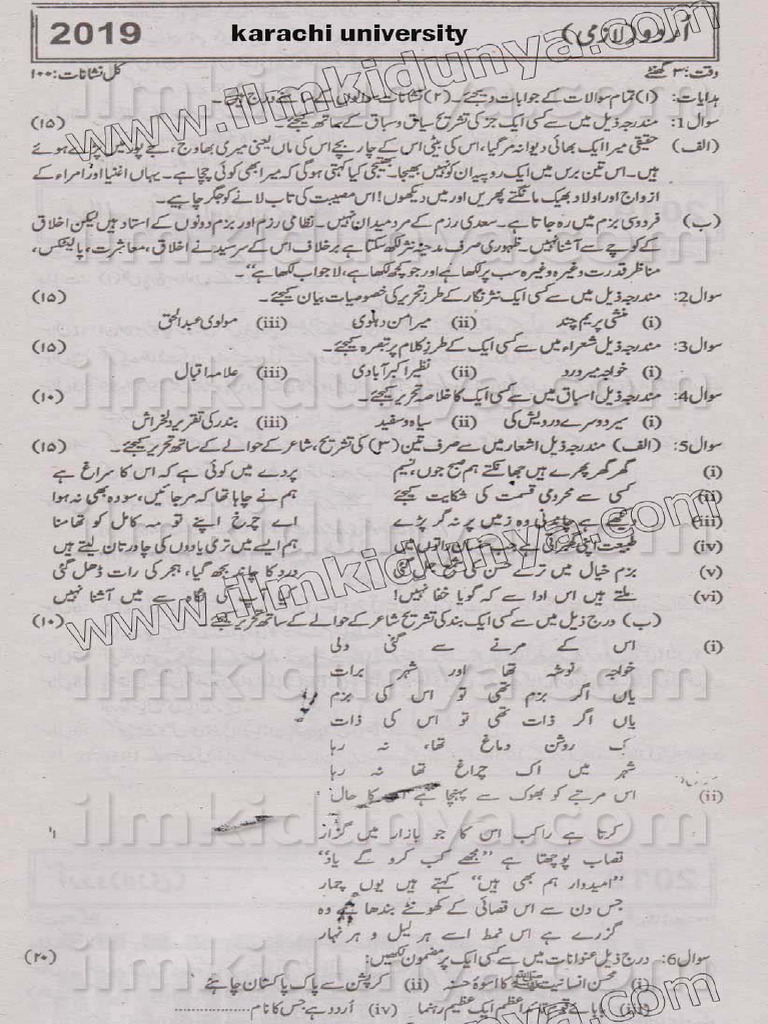 2019 karachi university اُردو (لازمی)
وقت: ۳ گھنٹے کل نشانات: ۱۰۰
ہدایات: (۱) تمام سوالات کے جوابات دیجئے۔ (۲) نشانات سوالوں کے
سوال 1: مندرجہ ذیل میں سے کسی ایک جز کی تشریح سیاق و سباق کے ساتھ کیجئے۔ (۱۵)
(الف) حقیقی میرا ایک بھائی دیوانہ مر گیا، اس کی بیٹی اس کے چار بچے اس کی ماں یعنی میری بھاوج، جے پور میں پڑے ہوئے
ہیں۔ اس تین برس میں ایک روپیہ ان کو نہیں بھیجا۔ بھتیجی کیا کہتی ہوگی کہ میرا بھی کوئی چچا ہے۔ یہاں اغنیا اور امراء کے
ازواج اور اولاد بھیک مانگتے پھریں اور میں دیکھوں! اس مصیبت کی تاب لانے کو جگر چاہیے۔
(ب) فردوسی بزم میں رہ جاتا ہے۔ سعدی رزم کے مرد میدان نہیں۔ نظامی رزم اور بزم دونوں کے استاد ہیں لیکن اخلاق
کے کوچے سے آشنا نہیں۔ ظہوری صرف مدحیہ نثر لکھ سکتا ہے برخلاف اس کے سرسید نے اخلاق، معاشرت، پالیٹکس،
مناظر قدرت وغیرہ وغیرہ سب پر لکھا ہے اور جو کچھ لکھا ہے، لا جواب لکھا ہے"۔
سوال 2: مندرجہ ذیل میں سے کسی ایک نثر نگار کے طرز تحریر کی خصوصیات بیان کیجئے۔ (۱۵)
(i) منشی پریم چند (ii) میر امن دہلوی (iii) مولوی عبدالحق
سوال 3: مندرجہ ذیل شعراء میں سے کسی ایک کے طرز کلام پر تبصرہ کیجئے۔ (۱۵)
(i) خواجہ میر درد (ii) نظیر اکبر آبادی (iii) علامہ اقبال
سوال 4: مندرجہ ذیل اسباق میں سے کسی ایک کا خلاصہ تحریر کیجئے۔ (۱۰)
(i) سیر دوسرے درویش کی (ii) سیاہ و سفید (iii) بندر کی تقریر دلخراش
سوال 5: (الف) مندرجہ ذیل اشعار میں سے صرف تین (۳) کی تشریح، شاعر کے حوالے کے ساتھ تحریر کیجئے۔ (۱۵)
(i) گھر گھر پھرے ہیں جھانکتے ہم صبح جوں نسیم پردے میں کوئی ہے کہ اس کا سراغ ہے
(ii) کسی سے محرومی قسمت کی شکایت کیجئے ہم نے چاہا تھا کہ مر جائیں، سو وہ بھی نہ ہوا
(iii) ہے چاندنی وہ زمیں پر نہ گر پڑے اے چرخ اپنے تو مہ کامل کو تھامنا
(iv) طبیعت اپنی گھبراتی ہے جب سنسان راتوں میں ہم ایسے میں تری یادوں کی چادر تان لیتے ہیں
(v) بزم خیال میں ترے حسن کی شمع جل گئی درد کا چاند بجھ گیا، ہجر کی رات ڈھل گئی
(vi) ملتے ہیں اس ادا سے کہ گویا خفا نہیں! کی نگاہ سے میں آشنا نہیں
(ب) درج ذیل میں سے کسی ایک بند کی تشریح شاعر کے حوالے کے ساتھ تحریر کیجئے (۱۰)
(i) اس کے مرنے سے گئی دلی
خواجہ نوشہ تھا اور شہر برات
یاں اگر بزم تھی تو اس کی بزم
یاں اگر ذات تھی تو اس کی ذات
ک روشن دماغ تھا، نہ رہا
شہر میں اک چراغ تھا نہ رہا
(ii) اس مرتبے کو بھوک سے پہنچا ہے اس کا حال
کرتا ہے راکب اس کا جو بازار میں گزار
قصاب پوچھتا ہے "مجھے کب کرو گے یاد"
"امیدوار ہم بھی ہیں" کہتے ہیں یوں چمار
جس دن سے اس قصائی کے کھونٹے بندھا ہے وہ
گزرے ہے اس نمط اسے ہر لیل و ہر نہار
سوال 6: درج ذیل عنوانات میں سے کسی ایک پر مضمون لکھیں: (۲۰)
(i) محسن انسانیت ﷺ کا اسوۂ حسنہ (ii) کرپشن سے پاک پاکستان چاہئے
(iii) اعظم ایک عظیم رہنما (iv) اُردو ہے جس کا نام
www.ilmkidunya.com
ilmkidunya.com
www.ilmkidunya.com
ilmkidunya.com